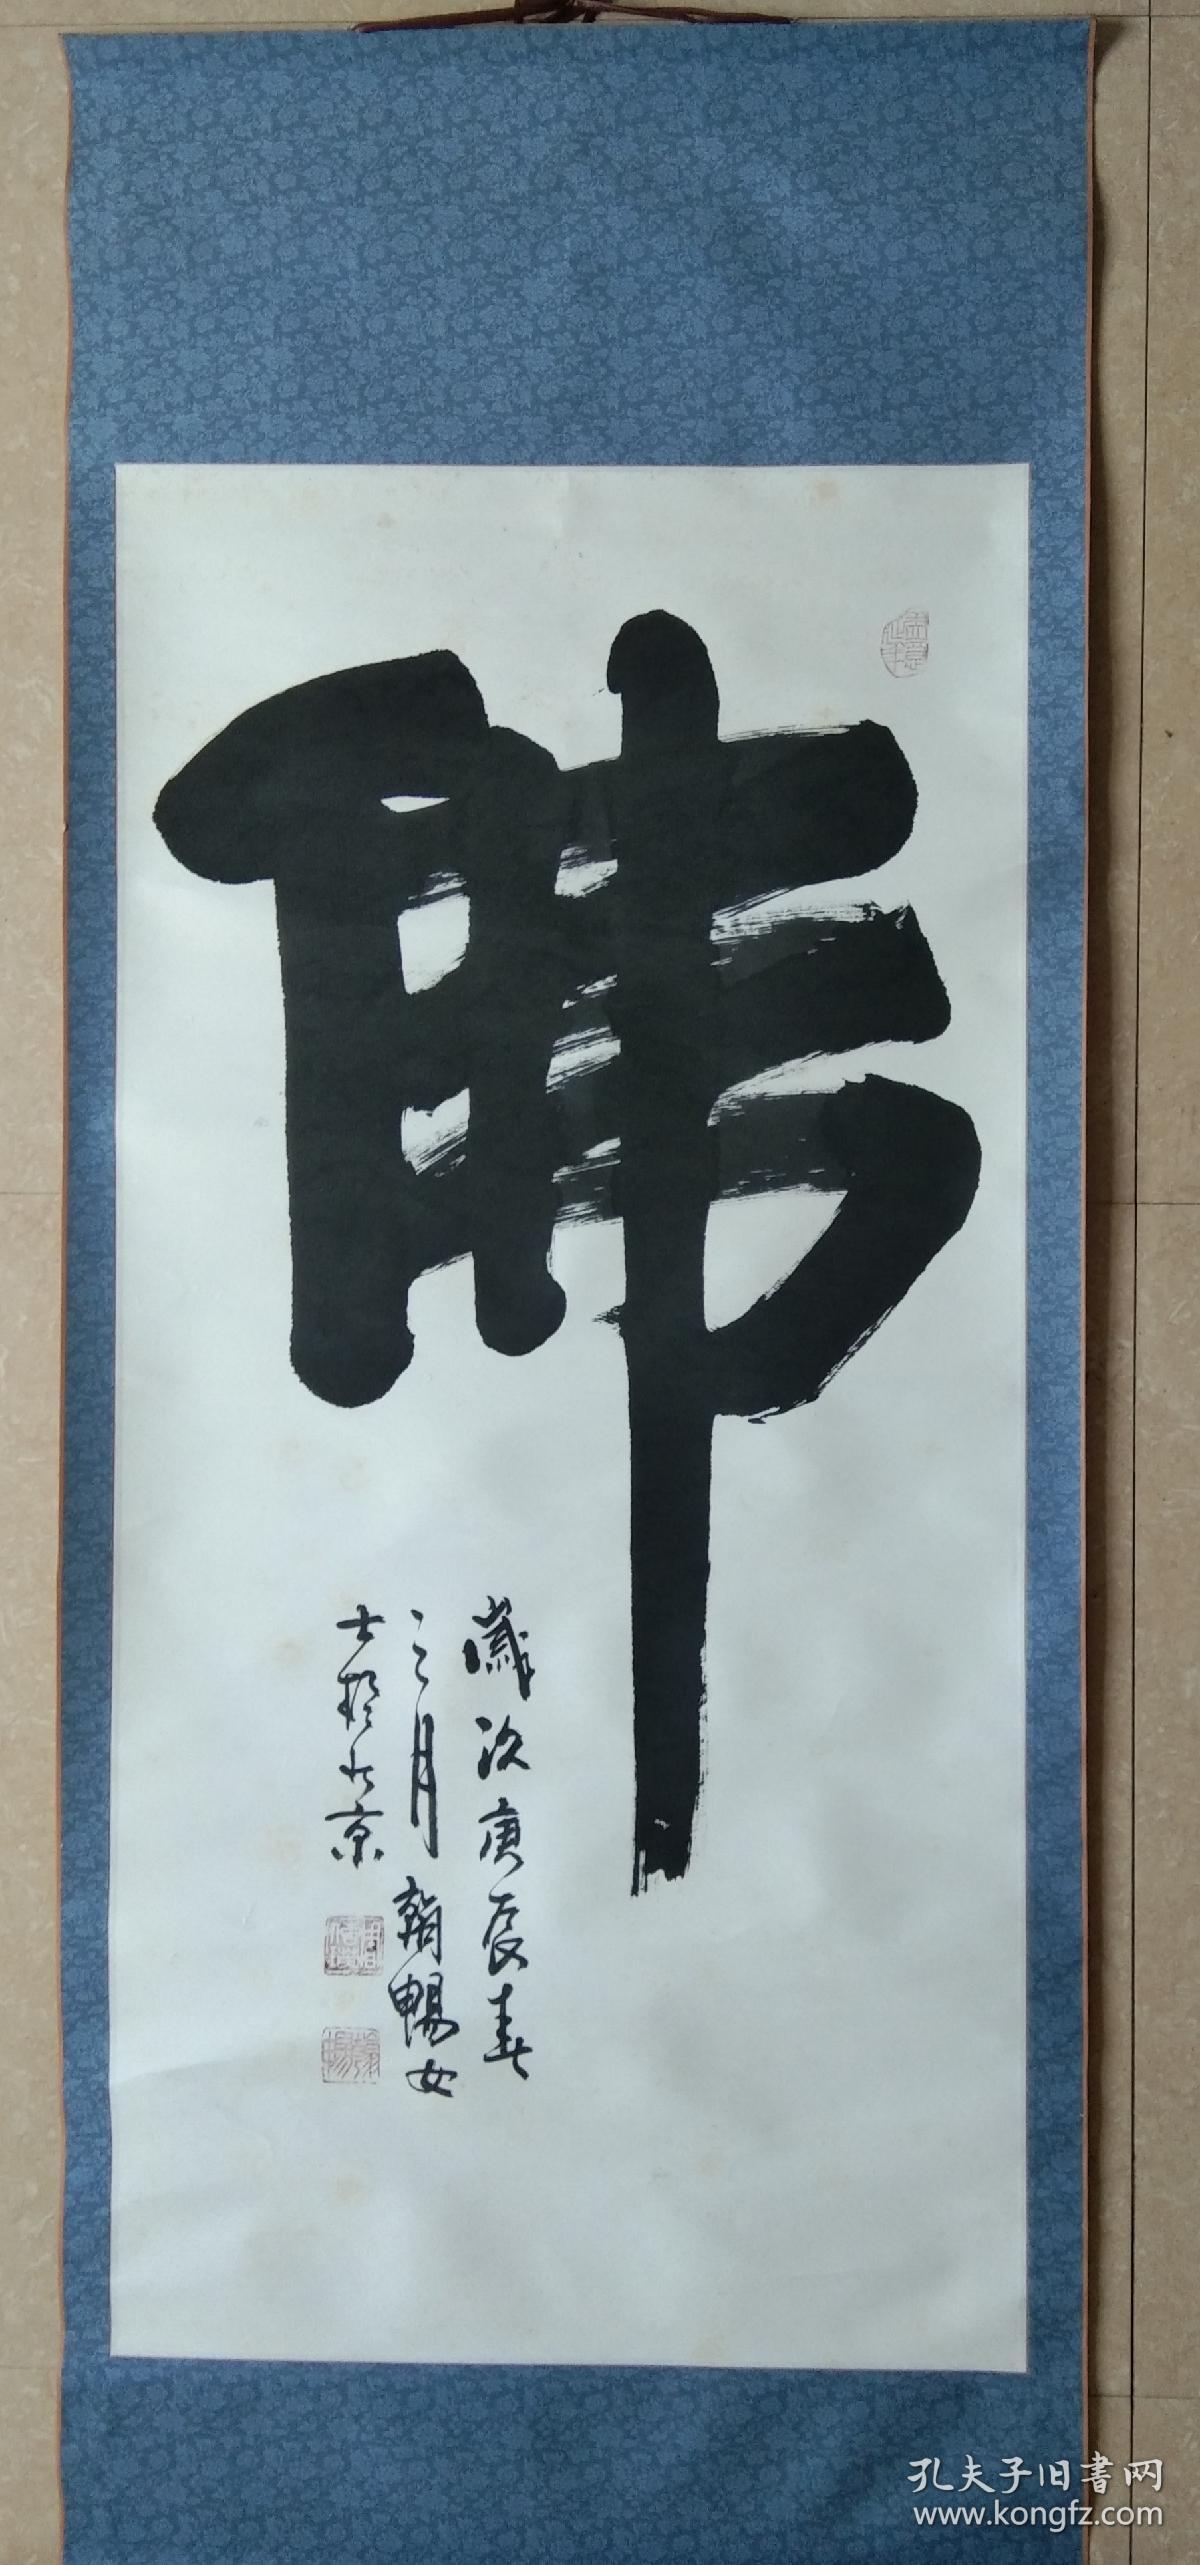 佛
歲次庚辰春
三月翰暢女
士於北京
孔夫子旧書网
www.kongfz.com